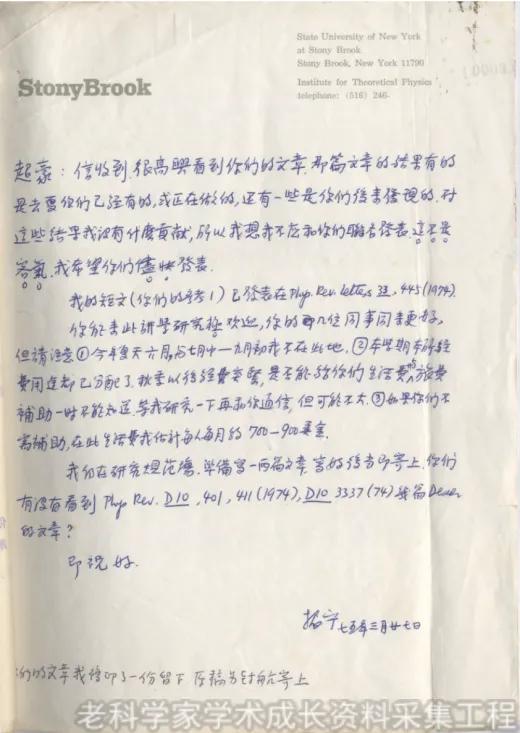 State University of New York
at Stony Brook
Stony Brook, New York 11790
Institute for Theoretical Physics
telephone: (516) 246-
StonyBrook
起豪：信收到,很高興看到你们的文章.那篇文章的结果有的
是去夏你们已经有的,或正在做的,还有一些是你们後来發現的.对
这些结果我没有什麽贡献,所以我想我不应和你们联名發表.这不是
客氣.我希望你们儘快發表.
我的短文(你们的参考1)已發表在Phys. Rev. Letters 33, 445(1974).
你能来此訪學研究極欢迎,你的那几位同事同来更好.
但請注意①今年夏天六月,与七月中一九月初我不在此地.②本學期本所经
费用途都已分配了.秋季以後经费緊,是否能给你们生活费,旅费
補助一时不能知道.等我研究一下再和你通信,但可能不大.③如果你们不
需補助,在此生活费我估計每人每月约700-900美金.
我们在研究规范塲.準備写一两篇文章.写好後当即寄上.你们
有没有看到Phys Rev. D10, 401, 411(1974), D10 3337(74)幾篇Deser
的文章？
即祝 好.
振宁
七五年三月廿七日
们的文章我複印了一份留下 原稿另封航寄上
老科学家学术成长资料采集工程